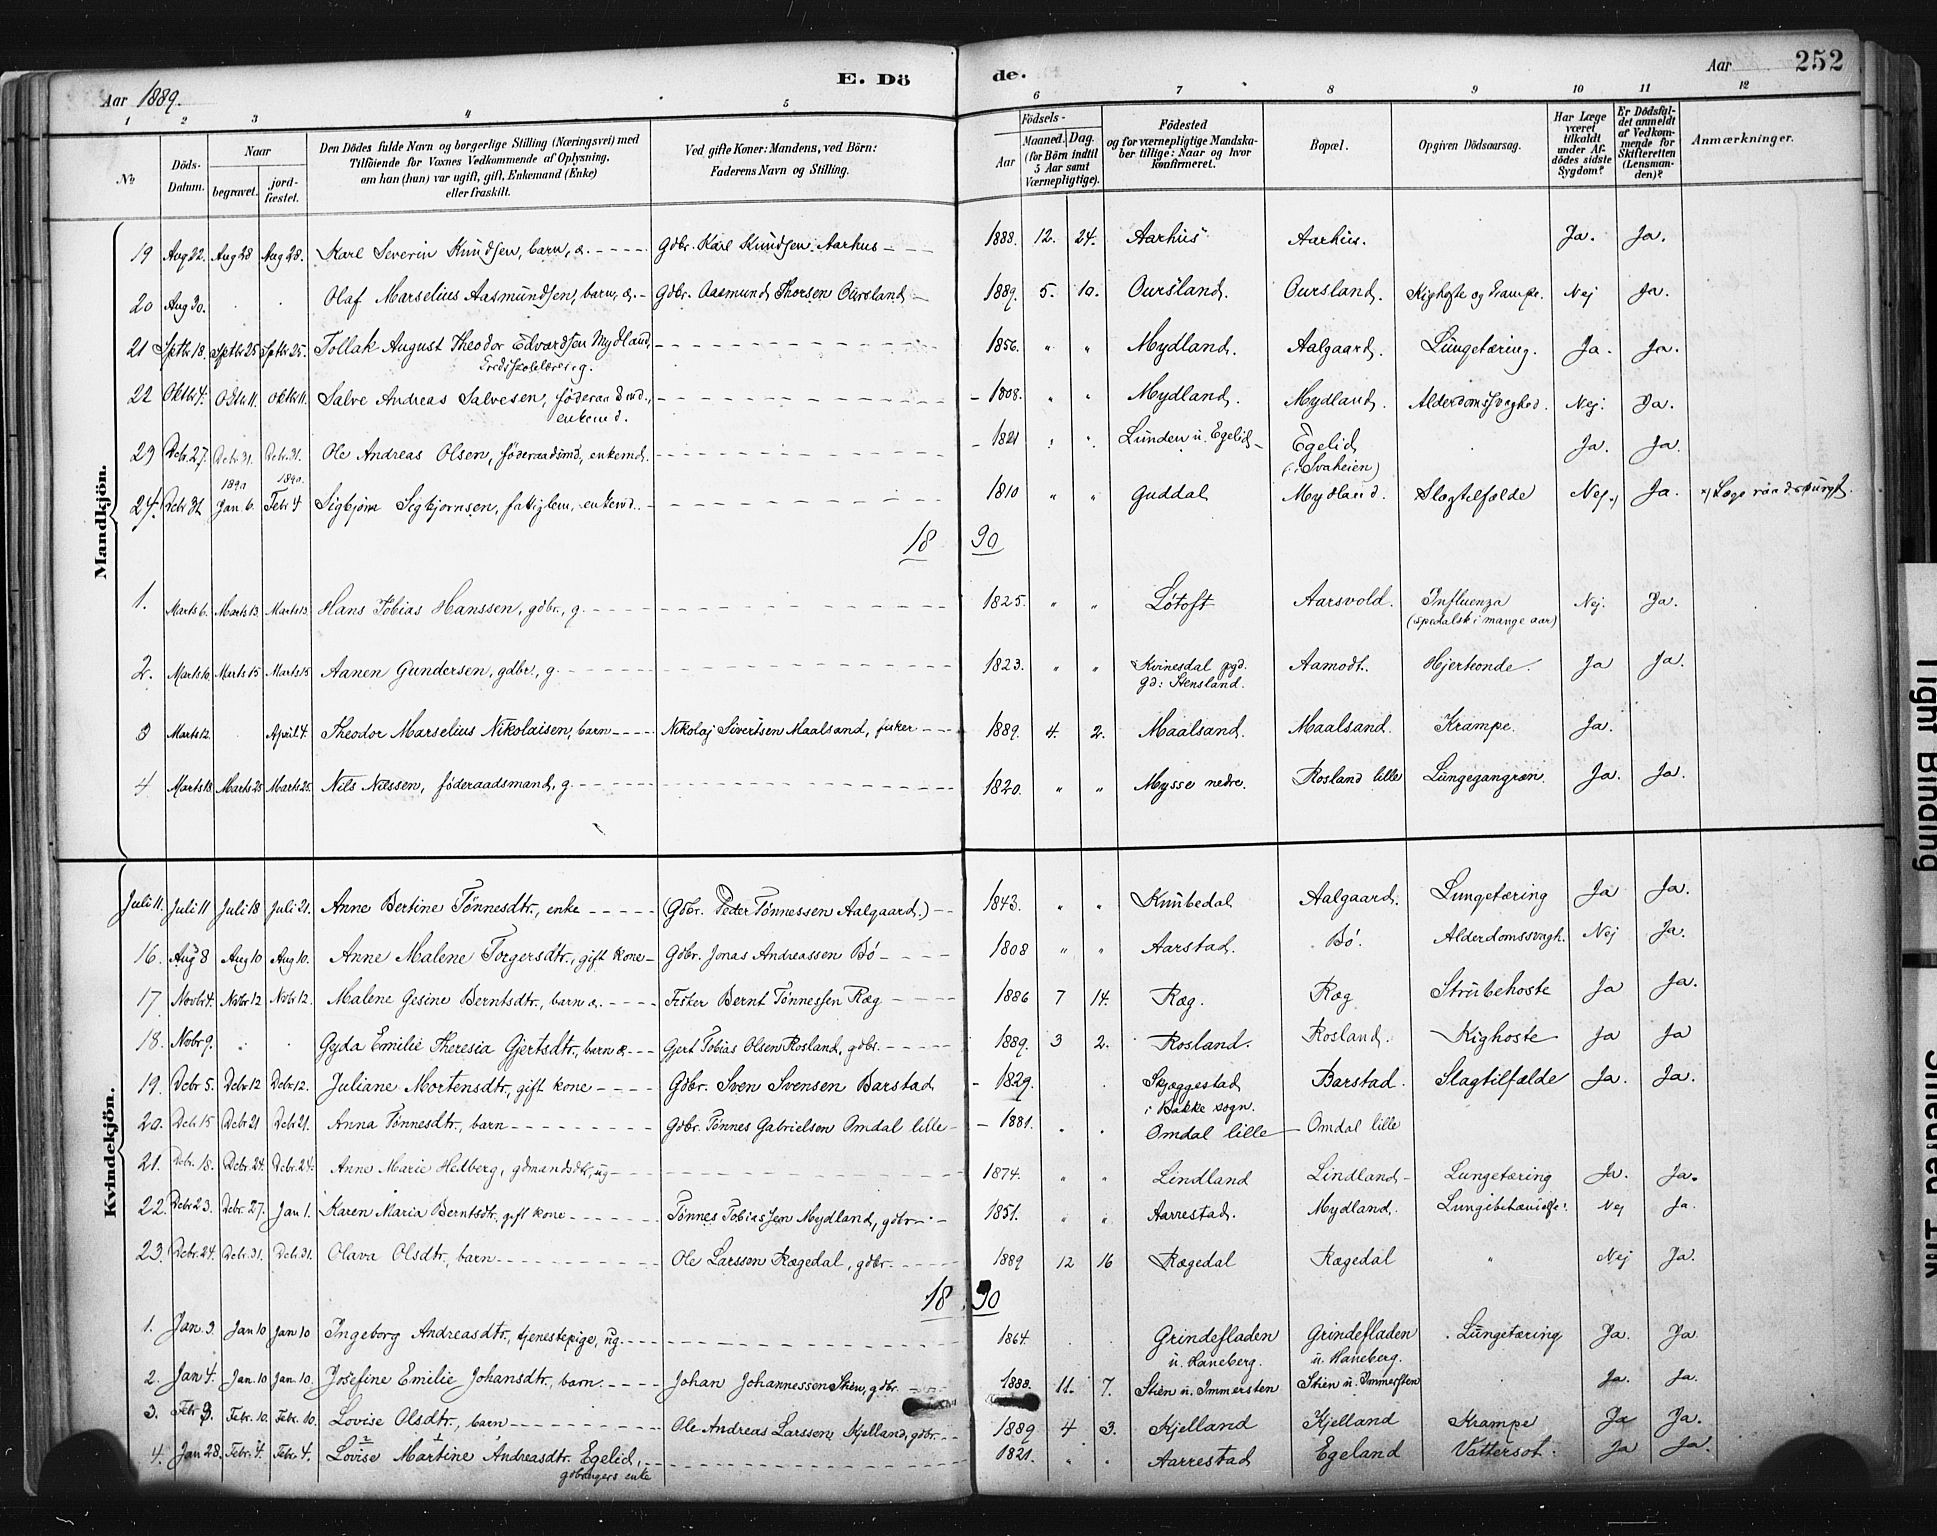 Aar 1889. E. Dö de. Aar 252
1 2 3 4 5 6 7 8 9 10 11 12
No Döds-Datum. Naar begravet. jord-fæstet. Den Dödes fulde Navn og borgerlige Stilling (Næringsvei) med Tilföiende for Voxnes Vedkommende af Oplysning, om han (hun) var ugift, gift, Enkemand (Enke) eller fraskilt. Ved gifte Koner: Mandens, ved Börn: Faderens Navn og Stilling. Födsels- Aar Maaned. Dag. (for Börn indtil 5 Aar samt Værnepligtige). Födested og for værnepligtige Mandskaber tillige: Naar og hvor konfirmeret. Bopæl. Opgiven Dödsaarsag. Har Læge været tilkaldt under Afdödes sidste Sygdom? Er Dödsfaldet anmeldt af Vedkommende for Skifteretten (Lensmanden)? Anmærkninger.
Mandkjön.
19 Aug 22. Aug 28 Aug 28. Karl Severin Knudsen, barn, æ. Gdbr. Karl Knudsen Aarhus 1888. 12. 24. Aarhus Aarhus. Ja. Ja.
20 Aug 30. Olaf Marselius Aasmundsen, barn, æ. Gdbr. Aasmund Thorsen Oursland 1889. 5. 10. Oursland. Oursland. Kighoste og Krampe. Nej Ja.
21 Sptbr 18. Sptbr 25 Sptbr 25. Tollak August Theodor Edvardsen Mydland, 1856. " " Mydland. Aalgaard. Lungetæring. Ja. Ja.
22 Oktbr 4. Oktbr 11. Oktbr 11. Salve Andreas Salvesen, föderaadsmd., enkemd. 1808. " " Mydland. Mydland. Alderdomssvaghed. Nej. Ja.
23 Dcbr. 27. Dcbr 31. Dcbr. 31. Ole Andreas Olsen, föderaadsmd, enkemd. 1821 " " Lunden u. Egelid Egelid (i Svaheien) Ja. Ja.
24. Dcbr 31. 1890 Jan 6. 1890. Febr 4 Sigbjörn Sigbjörnsen, fattiglem, enkemd. 1810 " " Guddal Mydland. Slagtilfælde Nej x) Ja. x) Læge raadspurgt.
18 90
1. Marts 6. Marts 13. Marts 13. Hans Tobias Hanssen, gdbr., g. 1825. " " Lötoft Aarsvold. Influenza (spedalsk i mange aar) Nej. Ja.
2. Marts 10. Marts 15 Marts 15 Aanen Gundersen, gdbr., g. 1823. " " Kvinesdal pgd. gd: Stensland. Aamodt. Hjerteonde. Ja Ja.
3 Marts 12. April 4. Theodor Marselius Nikolaisen, barn Nikolaj Sivertsen Maalsand, fisker 1889. 4. 2. Maalsand. Maalsand. Krampe. Ja.
4 Marts 18. Marts 25 Marts 25. Nils Nilssen, föderaadsmand, g. 1820. " " Mysse nedre. Rosland lille Lungegangræn. Ja. Ja.
Kvindekjön.
Juli 11. Juli 11 Juli 18 Juli 21. Anne Bertine Tönnesdtr., enke (Gdbr. Peder Tönnessen Aalgaard.) 1843. " " Knubedal Aalgaard. Lungetæring Ja Ja.
16. Aug 8 Aug 10 Aug 10. Anne Malene Torgersdtr., gift kone Gdbr. Jonas Andreassen Bö 1808 " " Aarstad. Bö. Alderdomssvagh. Nej Ja.
17 Novbr 4. Novbr 12 Novbr 12. Malene Gesine Berntsdtr., barn æ. Fisker Bernt Tönnessen Ræg 1886 7 14. Ræg. Ræg Strubehoste Ja Ja.
18. Novbr 9. Gyda Emilie Theresia Gjertsdtr., barn æ. Gjert Tobias Olsen Rosland, gdbr. 1889. 3 2. Rosland. Rosland. Kighoste Ja Ja
19. Dcbr. 5. Dcbr 12 Dcbr. 12. Juliane Mortensdtr., gift kone Gdbr. Sven Svensen Barstad 1829. Skjæggestad i Bakke sogn. Barstad. Slagtilfælde Ja. Ja.
20. Dcbr. 15 Dcbr 21 Dcbr 21. Anna Tönnesdtr., barn Gdbr. Tönnes Gabrielsen Omdal lille 1881. " " Omdal lille Omdal lille
21. Dcbr. 18. Dcbr. 24. Dcbr. 24. Anne Marie Hedberg, gdmandsdtr., ug 1874. " " Lindland Lindland Lungetæring Ja. Ja.
22. Dcbr 23. Dcbr. 27. Jan 1. Karen Maria Berntsdtr. gift kone Tönnes Tobiassen Mydland, gdbr. 1851. " " Aarrestad. Mydland. Nej Ja.
23. Dcbr. 24. Dcbr. 31. Dcbr. 31. Olava Olsdtr., barn Ole Larssen Rægedal, gdbr. 1889 12 16 Rægedal Rægedal " Nej Ja.
18 90
1. Jan 3. Jan 10 Jan 10 Ingeborg Andreasdtr., tjenestepige, ug 1864. Grindefladen u. Haneberg. Grindefladen u. Haneberg. Lungetæring Ja. Ja
2. Jan 4. Jan. 10 Jan. 10. Josefine Emilie Johansdtr., barn. Johan Johannessen Stien, gdbr. 1888. 11. 7. Stien u. Immersten Stien u. Immersten Ja. Ja.
3. Febr 3. Febr. 10. Febr. 10. Lovise Olsdtr., barn Ole Andreas Larssen Kjelland, gdbr. 1889 4 3. Kjelland Kjelland Krampe Ja Ja.
4. Jan 28. Febr. 4. Febr. 4. Lovise Martine Andreasdtr. Egelid, gdbrugers enke 1821. " " Aarrestad Egeland Vattersot. Ja Ja.
Tight Binding
Smeared Ink